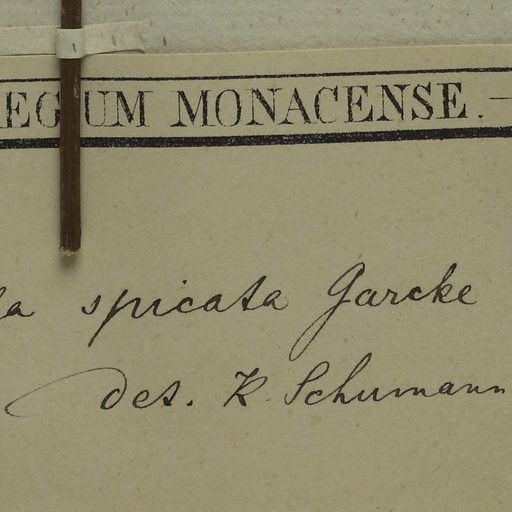 REGIUM MONACENSE.—
spicata Garcke
Det. K. Schumann